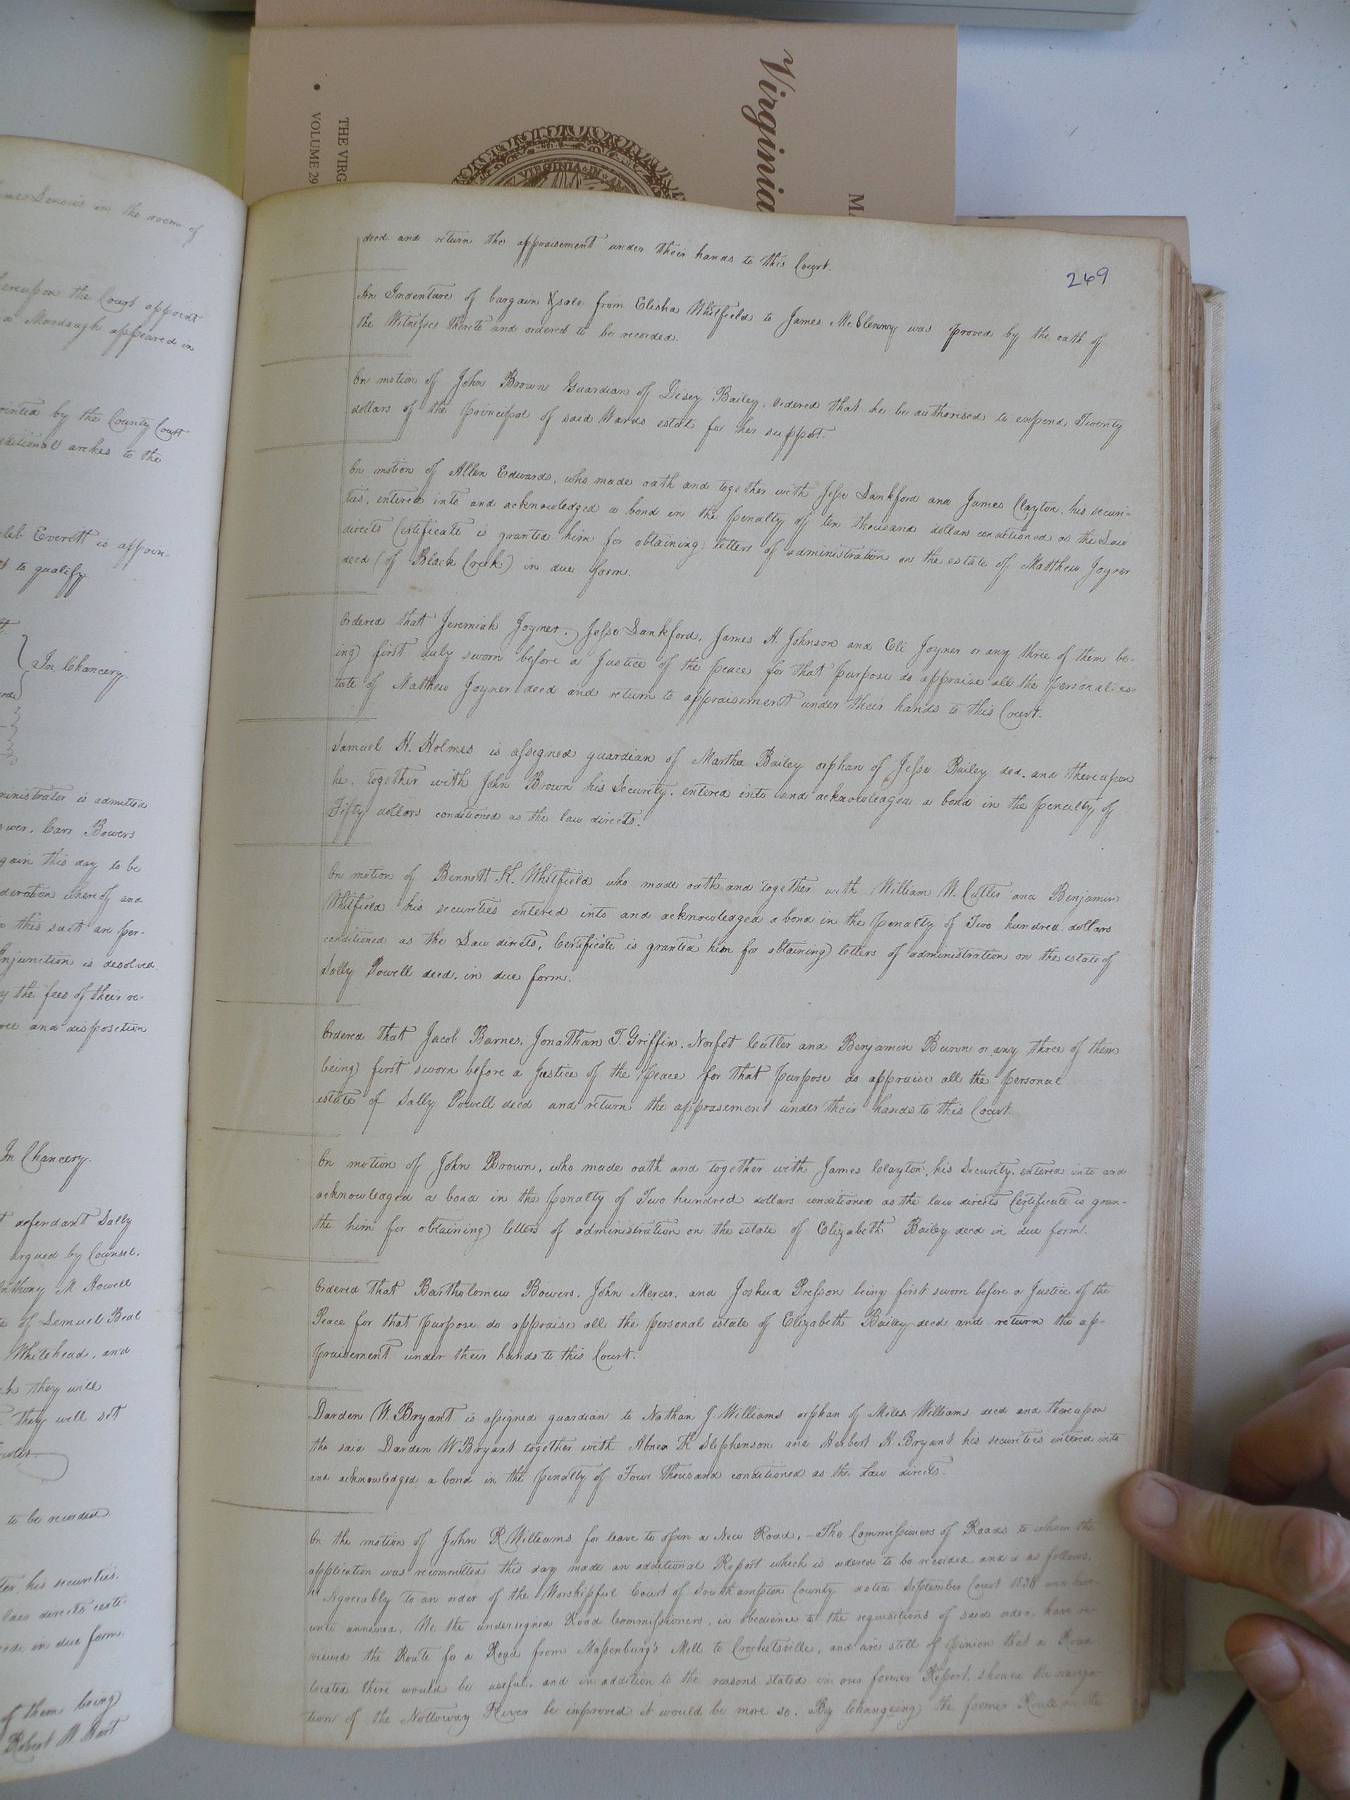 Virginia
THE VIRG
VOLUME 29
VIRGINIA
269
deed and return the appraisement under their hands to this Court.
An Indenture of bargain & sale from Elisha Whitfield to James McClenny was proved by the oath of
the Witnesses thereto and ordered to be recorded.
On motion of John Brown Guardian of Disey Bailey, ordered that he be authorised to expend Twenty
dollars of the principal of said Wards estate for her support.
On motion of Allen Edwards, who made oath and together with Jesse Lankford and James Clayton, his securi-
ties, entered into and acknowledged a bond in the penalty of ten thousand dollars conditioned as the Law
directs Certificate is granted him for obtaining letters of administration on the estate of Matthew Joyner
deed (of Black Creek) in due form.
Ordered that Jeremiah Joyner, Jesse Lankford, James H. Johnson and Eli Joyner or any three of them be-
ing first duly sworn before a Justice of the peace for that purpose do appraise all the personal es-
tate of Matthew Joyner deed and return to appraisement under their hands to this Court.
Samuel H. Holmes is assigned guardian of Martha Bailey orphan of Jesse Bailey ded. and thereupon
he, together with John Brown his Security, entered into and acknowledged a bond in the penalty of
Fifty dollars conditioned as the law directs.
On motion of Bennett K. Whitfield who made oath and together with William W. Cutler and Benjamin
Whitfield his securities entered into and acknowledged a bond in the penalty of Two hundred dollars
conditioned as the Law directs, Certificate is granted him for obtaining letters of administration on the estate of
Sally Powell deed. in due form.
Ordered that Jacob Barnes, Jonathan T. Griffin, Norfet Cutler and Benjamin Bunn or any three of them
being first sworn before a Justice of the peace for that purpose do appraise all the personal
estate of Sally Powell deed and return the apprasement under their hands to this Court.
On motion of John Brown, who made oath and together with James Clayton, his Security, entered into and
acknowledged a bond in the penalty of Two hundred dollars conditioned as the law directs Certificate is gran-
the him for obtaining letters of administration on the estate of Elizabeth Bailey deed in due form.
Ordered that Bartholomew Bowers, John Mercer, and Joshua Presson being first sworn before a Justice of the
Peace for that purpose do appraise all the personal estate of Elizabeth Bailey deed and return the ap-
praisement under their hands to this Court.
Darden W. Bryant is assigned guardian to Nathan J. Williams orphan of Miles Williams deed and thereupon
the said Darden W Bryant together with Abner K Stephenson and Herbert H. Bryant his securities entered into
and acknowledged a bond in the penalty of Four Thousand conditioned as the Law directs.
On the motion of John R Williams for leave to open a New Road,—The Commissioners of Roads to whom the
application was recommitted this day made an additional Report which is ordered to be recorded and is as follows,
"Agreeably to an order of the Worshipful Court of Southampton County dated September Court 1838
unto annexed. We the undersigned Road Commissioners, in obedience to the requisitions of said order, have re-
viewed the Route for a Road from Massenburg's Mill to Crocketsville, and are still of opinion that a Road
located there would be useful, and in addition to the reasons stated in our former Report, should the naviga-
tion of the Nottoway River be improved it would be more so. By Changeing the former Route
in the room of
the Court appoint
Murdaugh appeared in
by the County Court
arches to the
Everett is appoin-
to qualify
In Chancery
is admitted
Bowers
this day to be
and
this suit are per-
Injunction is desolved
the fees of their
and disposition
In Chancery.
defendant Sally
argued by Counsel.
M. Howell
of Lemuel Beal
Whitehead, and
they will
they will set
to be recorded
his securities.
law directs
in due form
of them being
Robert